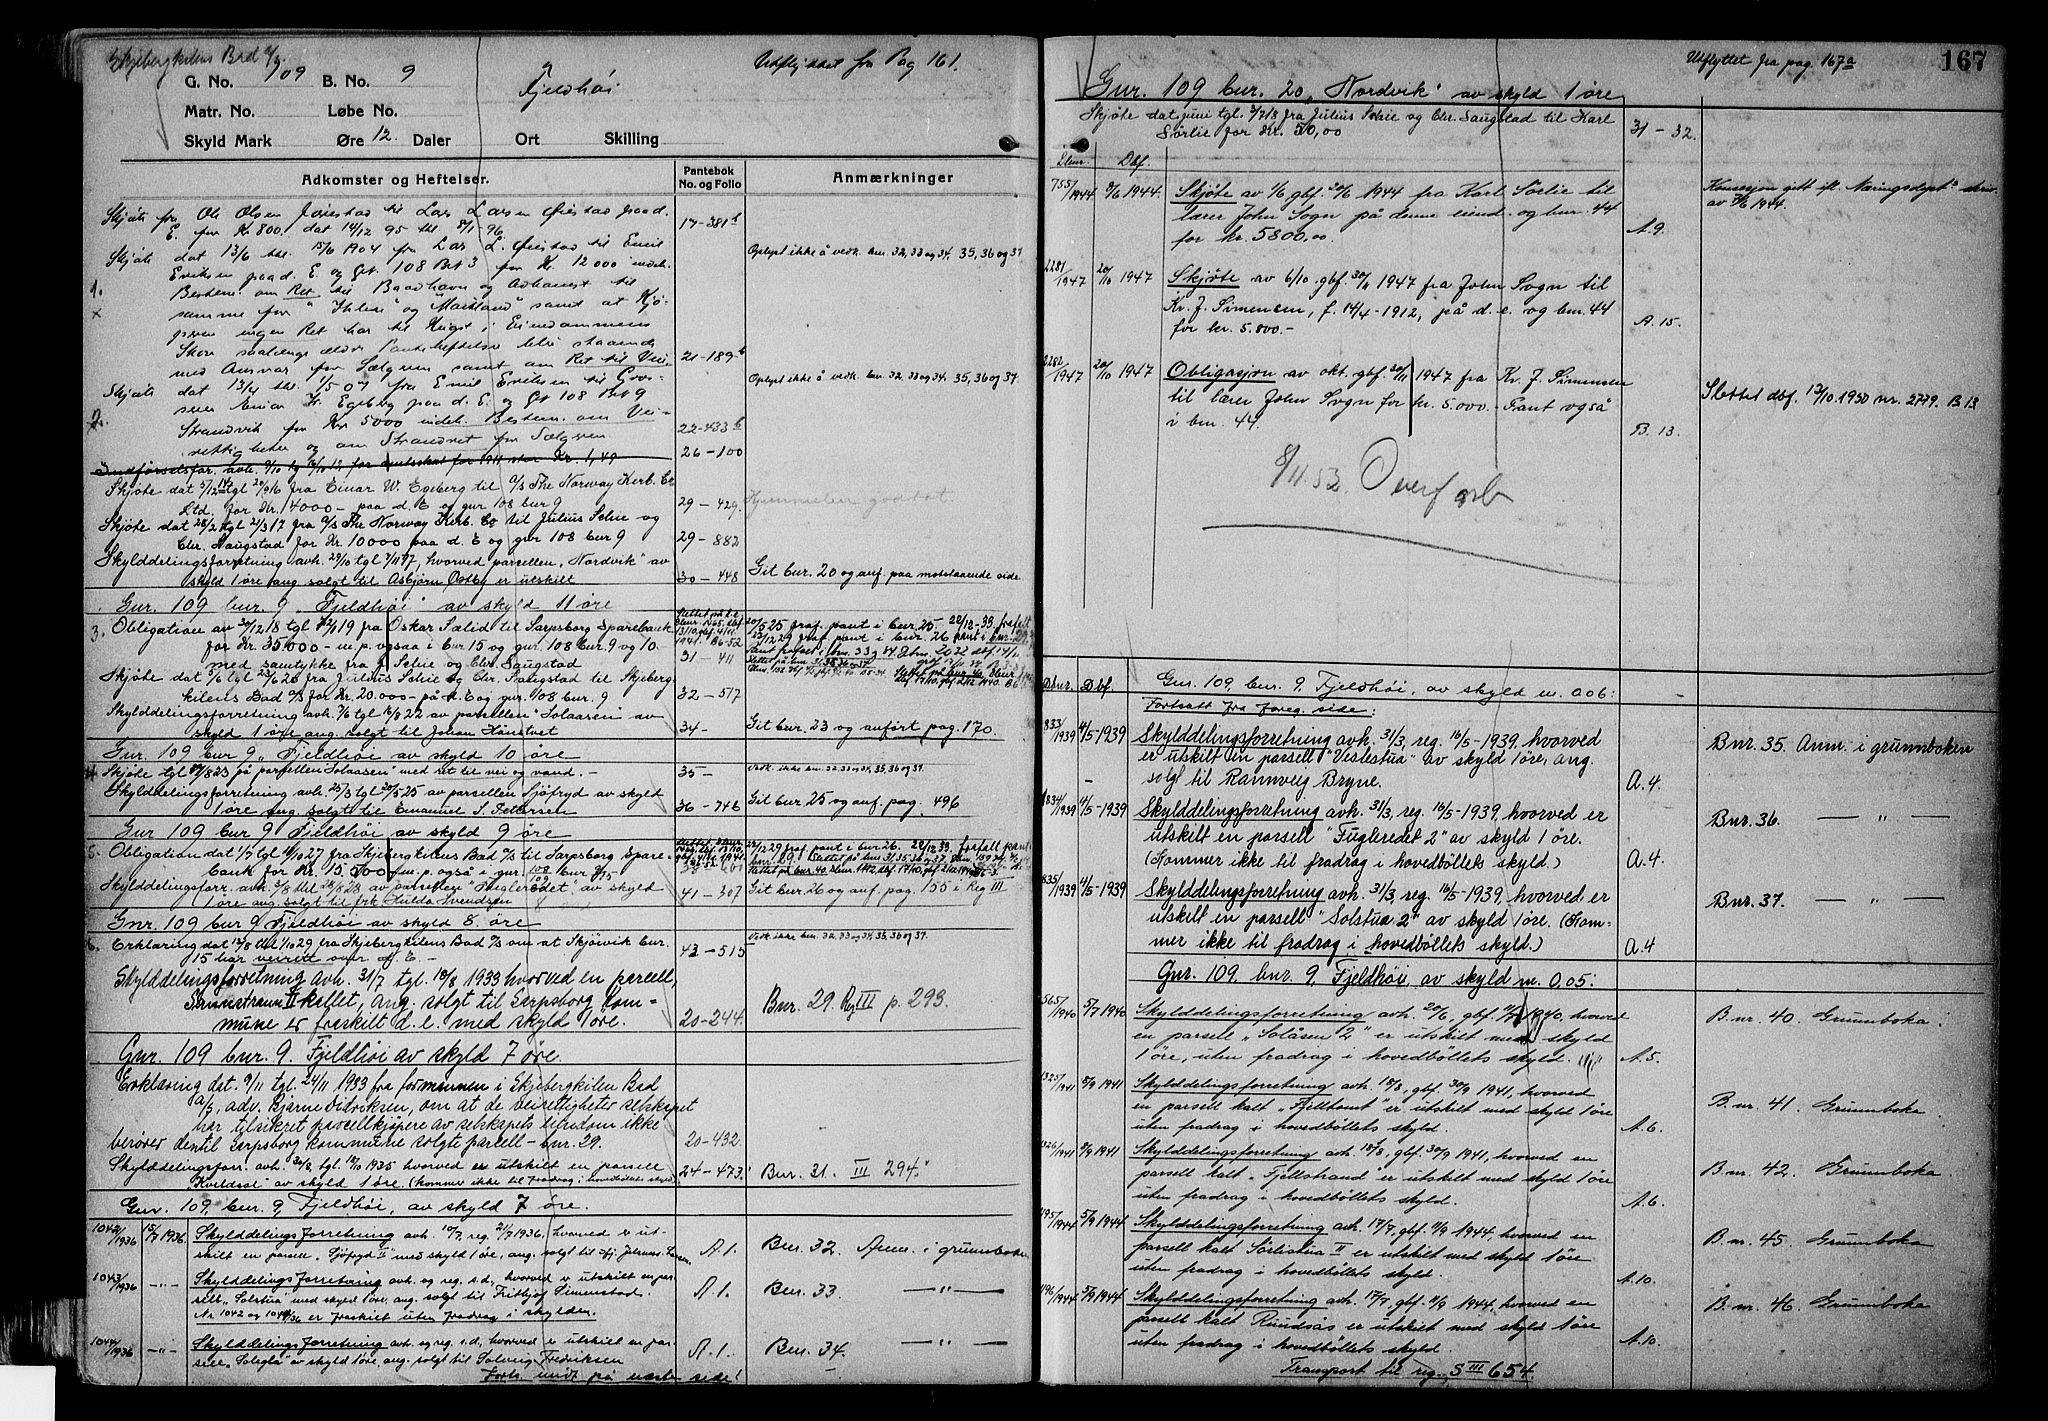 Skjebergkilens Bad a/s.
G. No. 109 B. No. 9 Fjeldhöi
Udflyttet fra Pag 161.
Matr. No. Løbe No.
Skyld Mark Øre 12. Daler Ort Skilling
Adkomster og Heftelser.
Pantebok No. og Folio
Anmærkninger
Skjøte fra Ole Olsen til Lars Larsen Øiestad paa d.
E. for Kr 800. dat 14/12 95 thl. 8/1 96
17-381b
Skjøte dat 13/6 thl. 15/6 1904 fra Lars L. Øiestad til Emil
Oplyst ikke å vedk. bnr. 32, 33 og 34. 35, 36 og 37
Eriksen paa d. E. og Gt 108 Bt 3 for Kr 12 000 indeh.
1. Bestem. om Ret til Baadhavn og Adkomst til
samme for og "Markland" samt at Kjø-
peren ingen Ret har til Hugst i Eiendommens
Skov saalænge ældre Pantehæftelse blir staaende
med Ansvar for Sælgeren samt om Ret til Vei
21-189b
Skjøte dat 13/4 thl. 1/5 07 fra Emil Eriksen til Gros-
Oplyst ikke å vedk. bnr. 32, 33 og 34. 35, 36 og 37.
serer Einar W. Egeberg paa d. E. og Gt 108 Bt 9
2. Strandvik for Kr 5000 indeh. Bestem. om Vei-
22-433b
rettigheter og om Strandret for Sælgeren
26-100
Skjøte dat 5/12 14 tgl 20/9 16 fra Einar W. Egeberg til a/s The Norway Kerb. Co
Ltd. for Kr. 14000 - paa d. E og gnr 108 bnr 9
29 - 429. Hjemmelen godtat.
Skjøte dat 28/2 tgl 2/3 17 fra a/s The Norway Kerb. Co til Julius Selie og
Chr. Saugstad for Kr. 10000 paa d. E og gnr 108 bnr 9
29 - 882
Skylddelingsforretning avh. 29/10 tgl 7/11 17, hvorved parsellen "Nordvik" av
skyld 1 öre ang. solgt til Asbjørn Østby er utskilt
30 - 448
Git bnr. 20 og anf. paa motstaaende side
Gnr. 109 bnr. 9 "Fjeldhöi" av skyld 11 öre
3. Obligation av 30/12 18 tgl 22/1 19 fra Oskar Sælid til Sarpsborg Sparebank
for Kr. 35.000 - m. p. ogsaa i bnr 15 og gnr. 108 bnr. 9 og 10
31 - 411
med samtykke fra J Selie og Chr. Saugstad
Skjøte dat 5/6 tgl 23/6 20 fra Julius Selie og Chr. Saugstad til Skjeberg-
kilens Bad a/s for Kr. 20.000 - på d. E og gnr. 108 bnr. 9
32 - 517
Skylddelingsforretning avh. 7/6 tgl 16/8 22 av parsellen "Solaasen" av
skyld 1 öre ang. solgt til Johan Hønstvet
34 -
Git bnr. 23 og anført pag. 170.
Gnr. 109 bnr 9 "Fjeldhöi" av skyld 10 öre
4. Skjøte tgl 8/23 på parsellen "Solaasen" med ret til vei og vand. -
35 -
Vedk. ikke bnr. 32, 33 og 34, 35, 36 og 37.
Skylddelingsforretning avh. 25/3 tgl 20/5 25 av parsellen Sjöfryd av skyld
1 öre ang. solgt til Emanuel S. Pettersen
36 - 746
Git bnr 25 og anf. pag. 496
Gnr 109 bnr 9 Fjeldhöi av skyld 9 öre
5. Obligation dat 1/7 tgl 11/10 27 fra Skjebergkilens Bad a/s til Sarpsborg Spare-
bank for Kr. 15.500 m. p. også i gnr. 108 bnr 9
Skylddelingsforr. avh. 3/8 thl 28/8 28 av parsellen "Fugleredet" av skyld
1 öre ang. solgt til frk. Hulda Svendsen
41 - 307
Git bnr. 26 og anf. pag. 155 i Reg III.
Gnr. 109 bnr 9 Fjeldhöi av skyld 8. öre
6. Erklæring dat 12/8 thl 1/10 29 fra Skjebergkilens Bad a/s om at Skjövik bnr.
15 har veirett over d. E. -
43 - 515
Vedk. ikke bnr. 32, 33 og 34, 35, 36 og 37.
Skylddelingsforretning avh. 31/7 tgl. 10/8 1933 hvorved en parsell,
kallet, ang. solgt til Sarpsborg kom-
mune er fraskilt d. e. med skyld 1 öre.
20-244.
Bnr. 29. Reg III p. 293.
Gnr. 109 bnr. 9. Fjeldhöi av skyld 7 öre.
Erklæring dat. 9/11 tgl. 24/11 1933 fra formannen i Skjebergkilen Bad
a/s, adv. Bjarne Didriksen, om at de veirettigheter selskapet
har tilsikret parcellkjøpere av selskapets eiendom ikke
berører den til Sarpsborg kommune solgte parsell - bnr. 29.
20-432.
Skylddelingsforr. avh. 30/8 tgl. 18/10 1935 hvorved er utskilt en parsell
"Kveldsol" av skyld 1 öre. (kommer ikke til fradrag i hovedbølets skyld)
24-473.
Bnr. 31. III 294.
Gnr. 109, bnr. 9, Fjeldhöi, av skyld 7 öre.
1042/1936 15/7 1936 Skylddelingsforretning avh. 10/7, reg. 21/7 1936, hvorved er ut-
skilt en parsell "Sjöfryd II" med skyld 1 öre, ang. solgt til
A. 1.
Bnr. 32. Anm. i grunnboken
1043/1936 -"- Skylddelingsforretning avh. og reg. s.d., hvorved er utskilt en par-
sell "Solstua" med skyld 1 öre, ang. solgt til Fridtjof Simenstad.
Nr. 1042 og 1043/36 er fraskilt uten fradrag i skylden.
A. 1.
Bnr. 33. — " —
1044/1936 -"- Skylddelingsforretning avh. og reg. s.d., hvorved er utskilt en par-
sell "Soleglad" av skyld 1 öre, ang. solgt til Solveig Fredriksen
A. 1.
Bnr. 34. — " —
Forts. midt på næste side!
Utflyttet fra pag. 167a
167
Gnr. 109 bnr. 20 "Nordvik" av skyld 1 öre
Skjøte dat juni tgl. 3/7 18 fra Julius Selie og Chr. Saugstad til Karl
Sørlie for Kr. 50,00
31 - 32.
Dbnr. Dbf.
755/1944 9/6 1944. Skjøte av 1/6 gbf. 20/6 1944 fra Karl Sörlie til
lærer John Sogn på denne eiend. og bnr. 44
for kr. 5800,00.
A. 9.
Konsesjon gitt ifl. Næringsdept's skriv
av 1944.
2281/1947 20/10 1947 Skjøte av 6/10. gbf. 30/11 1947 fra John Sogn til
Kr. J. Simensen, f. 14/4-1912, på d. e. og bnr. 44
for kr. 5.800.-
A. 15.
2282/1947 20/10 1947 Obligasjon av okt. gbf. 30/11 1947 fra Kr. J. Simensen
til lærer John Sogn for kr. 5.000.- Pant også
i bnr. 44.
B. 13.
Slettet dbf. 13/10.1950 nr. 2779. B 13
8/11.53. Overf. grb
Dbnr. Dbf. Gnr. 109, bnr. 9, Fjeldhöi, av skyld m. 0.06:
Fortsatt fra foreg. side:
833/1939 4/5-1939 Skylddelingsforretning avh. 31/3, reg. 16/5-1939, hvorved
er utskilt en parsell "Vestestua" av skyld 1 öre, ang.
solgt til Rannveig Bryne.
A. 4.
Bnr. 35. Anm. i grunnboken
834/1939 4/5-1939 Skylddelingsforretning avh. 31/3, reg. 16/5-1939, hvorved er
utskilt en parsell "Fugleredet 2" av skyld 1 öre.
(Kommer ikke til fradrag i hovedböllets skyld.)
A. 4.
Bnr. 36. — " —
835/1939 4/5-1939 Skylddelingsforretning avh. 31/3, reg. 16/5-1939, hvorved er
utskilt en parsell "Solstua 2" av skyld 1 öre. (Kom-
mer ikke til fradrag i hovedböllets skyld.)
A. 4
Bnr. 37. — " —
Gnr. 109, bnr. 9, Fjeldhöi, av skyld m. 0.05:
565/1940 5/7 1940 Skylddelingsforretning avh. 20/6, gbf. 1940, hvorved
en parsell "Solåsen 2" er utskilt med skyld
1 öre, uten fradrag i hovedböllets skyld.
A. 5.
B. nr. 40. Grunnboka.
1325/1941 5/9 1941 Skylddelingsforretning avh. 18/8, gbf. 30/9 1941, hvorved
en parsell kalt "Fjelltomt" er utskilt med skyld 1 öre
uten fradrag i hovedböllets skyld.
A. 6.
B. nr. 41. Grunnboka.
1326/1941 5/9 1941 Skylddelingsforretning avh. 18/8, gbf. 30/9 1941, hvorved en
parsell kalt "Fjellstrand" er utskilt med skyld 1 öre
uten fradrag i hovedböllets skyld.
A. 6.
B. nr. 42. Grunnboka
495/1944 5/9 1944 Skylddelingsforretning avh. 17/7, gbf. 11/9 1944, hvorved en
parsell kalt Sörlistua II er utskilt med skyld 1 öre
uten fradrag i hovedböllets skyld.
A. 10.
B. nr. 45. Grunnboka
496/1944 5/9 1944 Skylddelingsforretning avh. 17/7, gbf. 11/9 1944, hvorved en
parsell kalt Rundsås er utskilt med skyld 1 öre
uten fradrag i hovedböllets skyld.
A. 10.
B. nr. 46. Grunnboka
Transport til reg. S III 654.